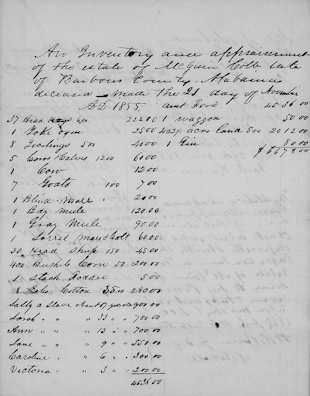 An Inventory and appraisement
of the estate of McGuin Cobb late
of Barbour County, Alabama
deceased made the 21 day of November
AD 1855 amt Ford 4536 00
37 Head 222 00 1 waggon 50.00
1 Yoke Oxen 25 00 402 acres land 500 2012 00
8 Yearlings 500 40 00 1 Gin 80.00
5 Cows & Calves 1200 60 00
1 Cow 12 00
7 Goats 100 7 00
1 Blind Mare 20 00
1 Bay Mule 120 00
1 Gray Mule 90.00
1 Sorrel Colt 60.00
30 Head Sheep 150 45 00
400 Bushels Corn 50 200 00
1 Stack Fodder 5 00
8 Bales Cotton 35 00 280 00
Sally a Slave 900 00
Sarah " " 700.00
Ann " " 13 " 700.00
Jane " " 9 " 550.00
Caroline " " 6 " 300 00
Victoria " " 3 " 200 00
4536 00